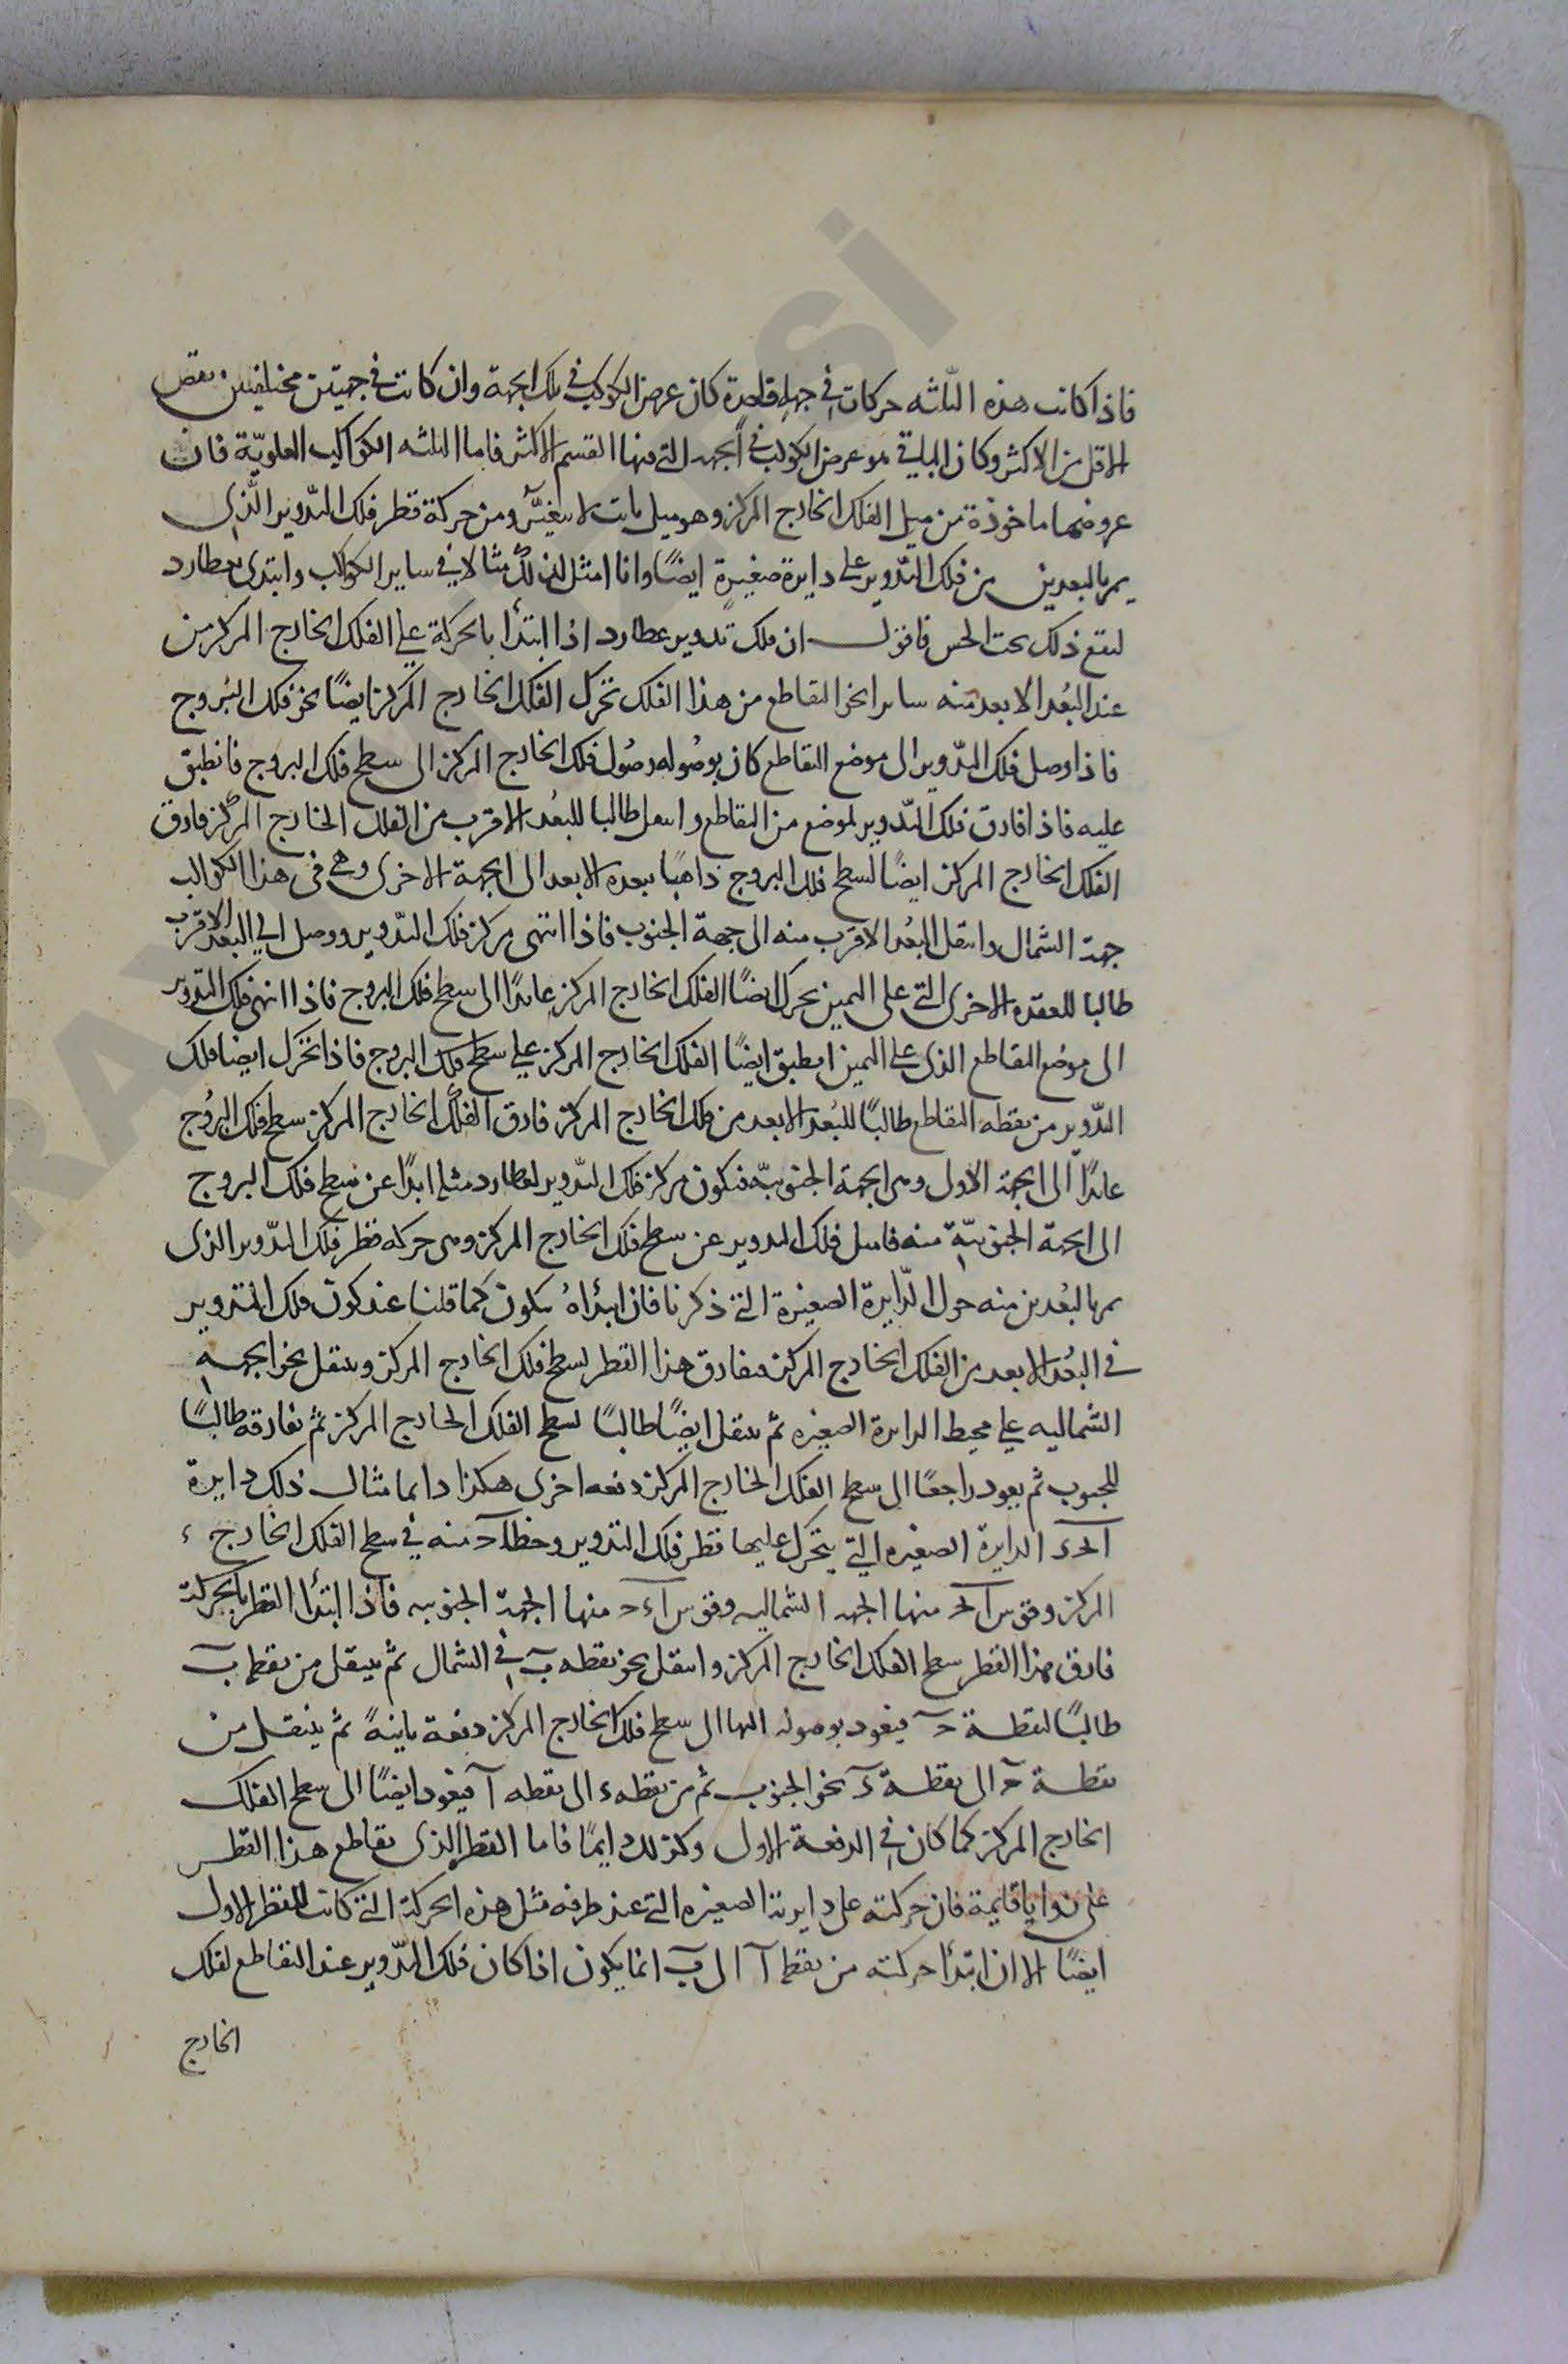 فاذا كانت هذه الثلثه حركات في جهة واحدة كان عرض الكوكب في تلك الجهة وان كانت في جهتين مختلفتين نقص
الاقل من الاكثر وكان الباقي هو عرض الكوكب في الجهه التي فيها القسم الاكثر فاما الثلثه الكواكب العلويّة فان
عروضها ماخوذة من ميل الفلك الخارج المركز وهو ميل ثابت لا يتغيّر ومن حركة قطر فلك التدوير الذي
يمر بالبعدين من فلك التدوير على دايرة صغيرة ايضًا وانا امثل لذلك مثالا في ساير الكواكب وابتدى بعطارد
ليقع ذلك تحت الحس فاقول ان فلك تدوير عطارد اذا ابتدأ بالحركة على الفلك الخارج المركز من
عند البُعد الابعد منه سايرا نحو التقاطع من هذا الفلك تحرك الفلك الخارج المركز ايضًا نحو فلك البُروج
فاذا وصل فلك التدوير الى موضع التقاطع كان بوصُوله وصُول فلك الخارج المركز الى سطح فلك البروج فانطبق
عليه فاذا فارق فلك التدوير لموضع من التقاطع وانتقل طالبا للبعُد الاقرب من الفلك الخارج المركز فارق
الفلك الخارج المركز ايضًا لسطح فلك البروج ذاهبًا ببعده الابعد الى الجهة الاخرى وهي في هذا الكوكب
جهة الشمال وانتقل البُعد الاقرب منه الى جهة الجنوب فاذا انتهى مركز فلك التدوير ووصل الى البُعد الاقرب
طالبا للعقده الاخرى التي على اليمين تحرك ايضًا الفلك الخارج المركز عايدًا الى سطح فلك البروج فاذا انتهى فلك التدوير
الى موضع التقاطع الذى على اليمين انطبق ايضًا الفلك الخارج المركز على سطح فلك البروج فاذا تحرك ايضا فلك
التدوير من نقطه التقاطع طالبًا للبُعد الابعد من فلك الخارج المركز فارق الفلك الخارج المركز سطح فلك البرُوج
عايدًا الى الجهة الاولى وهى الجهة الجنوبيّة فيكون مركز فلك التدوير لعطارد مثلا ابدًا عن سطح فلك البروج
الى الجهة الجنوبيّة منه فاميل فلك التدوير عن سطح فلك الخارج المركز وهى حركة قطر فلك التدوير الذى
يمر بالبُعدين منه حول الدّايرة الصغيرة التي ذكرنا فان ابتداهُ يكون كما قلنا عند كون فلك التدوير
في البُعد الابعد من الفلك الخارج المركز فيفارق هذا القطر لسطح فلك الخارج المركز وينتقل نحو الجهه
الشماليه على محيط الدايرة الصغيره ثم ينتقل ايضًا طالبًا لسطح الفلك الخارج المركز ثم يفارقه طالبًا
للجنوب ثم يعود راجعًا الى سطح الفلك الخارج المركز دفعه اخرى هكذا دايما مثال ذلك دايرة
ابحد الدايرة الصغيره التي يتحرك عليها قطر فلك التدوير وخط اح منه في سطح الفلك الخارج
المركز وقوس ابح منها الجهه الشماليه وقوس ادح منها الجهة الجنوبيه فاذا ابتدأ القطر بالحركة
فارق هذا القطر سطح الفلك الخارج المركز وانتقل نحو نقطه ب في الشمال ثم ينتقل من نقطه ب
طالبًا لنقطة ح فيعود بوصوله اليها الى سطح فلك الخارج المركز دفعة ثانيةً ثم ينتقل من
نقطة ح الى نقطة د نحو الجنوب ثم من نقطه د الى نقطه ا فيعود ايضًا الى سطح الفلك
الخارج المركز كما كان في الدفعة الاولى وكذلك دايمًا فاما القطر الذى يقاطع هذا القطر
على زوايا قايمة فان حركته على دايرته الصغيره التي عند طرفه مثل هذه الحركة التي كانت للقطر الاول
ايضًا الا ان ابتدأ حركته من نقطه ا الى ب انما يكون اذا كان فلك التدوير عند التقاطع لفلك
الخارج